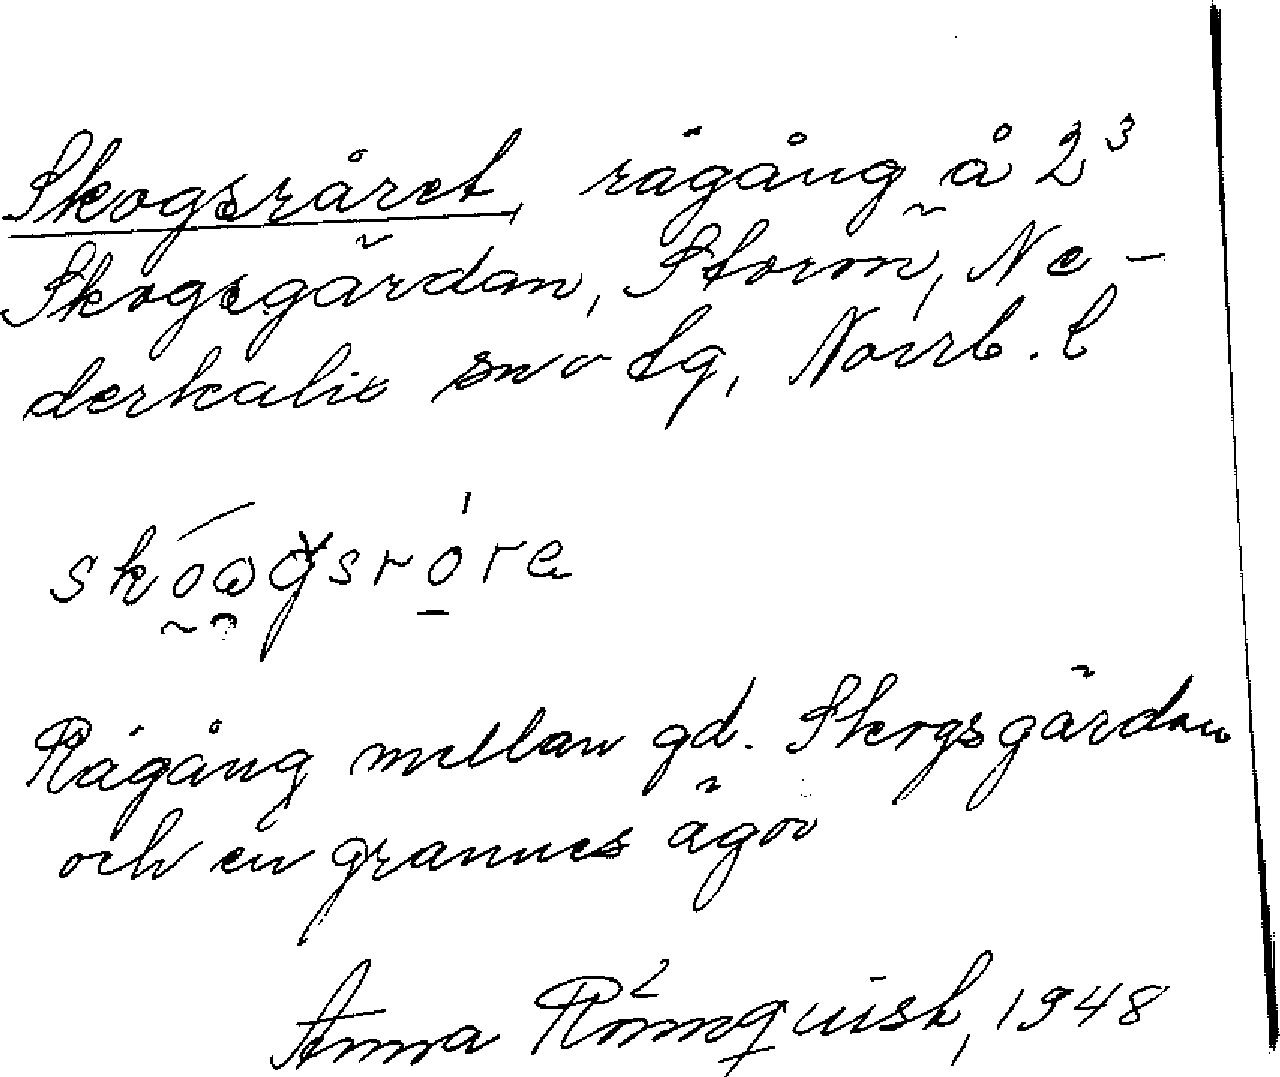 Skogsråret, rågång å 2³
Skogsgärdan, Storön, Ne-
derkalix sn o tg, Norrb. l
skóωgsròre
Rågång mellan gd. Skogsgärdan
och en grannes ägor
Anna Rönnquist, 1948